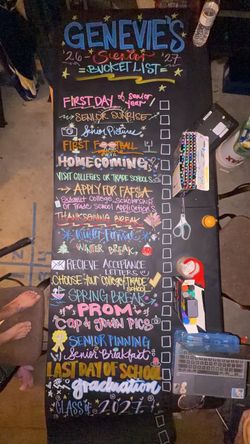 GENEVIE'S
'26 - Senior - '27
BUCKET LIST
FIRST DAY of senior year
SENIOR SUNRISE
Senior Pictures
FIRST FOOTBALL
HOMECOMING
VISIT COLLEGES OR TRADE SCHOOLS
APPLY FOR FAFSA
SUBMIT COLLEGE, SCHOLARSHIP
OR TRADE SCHOOL APPLICATIONS
THANKSGIVING BREAK
Winter Formal
WINTER BREAK
RECIEVE ACCEPTANCE
LETTERS
CHOOSE YOUR COLLEGE/TRADE
SCHOOL
SPRING BREAK
PROM
CAP & GOWN PICS
SENIOR PINNING
Senior Breakfast
LAST DAY OF SCHOOL
graduation
CLASS OF 2027